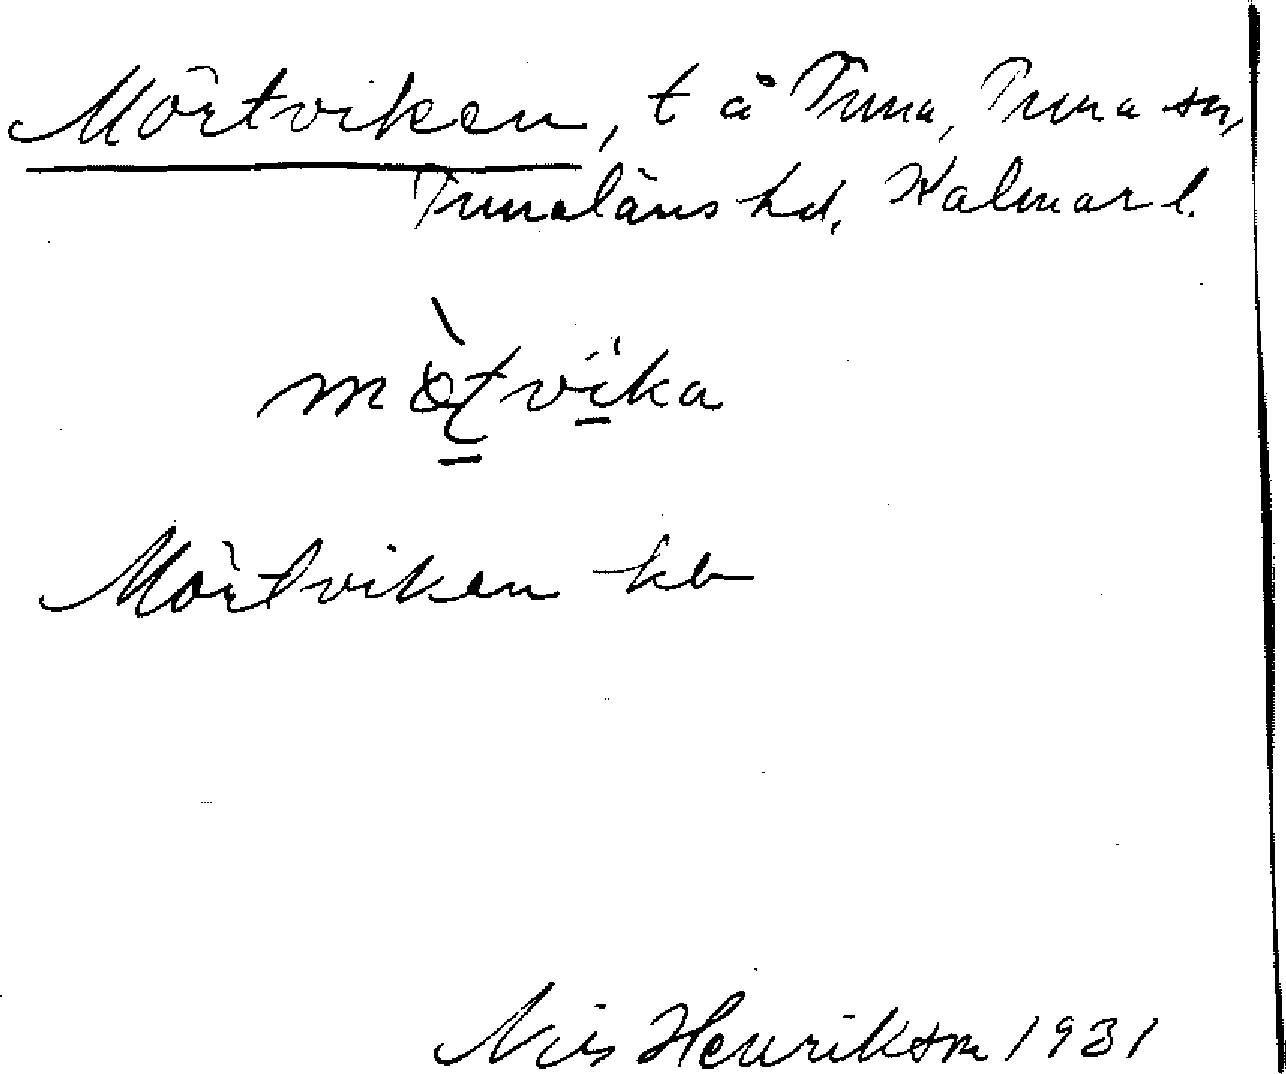 Mörtviken, t å Tuna, Tuna sn,
Tunaläns hd, Kalmar l.
mö̀tvika
Mörtviken kb
Nils Henrikson 1931